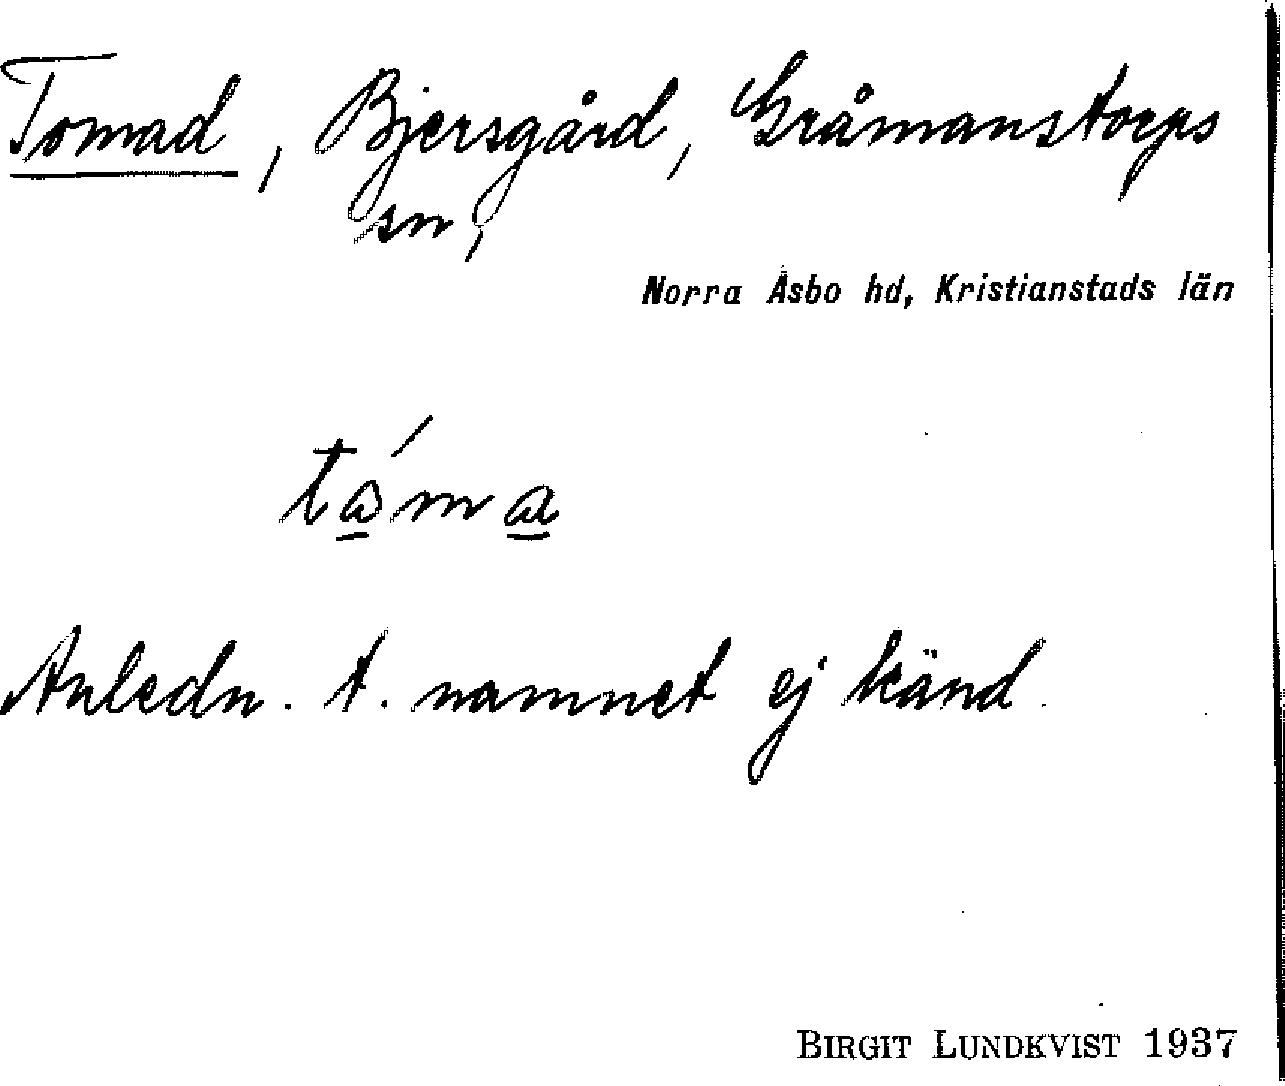 Tomad, Bjersgård, Gråmanstorps
sn,
Norra Åsbo hd, Kristianstads län
Anledn. t. namnet ej känd.
BIRGIT LUNDKVIST 1937